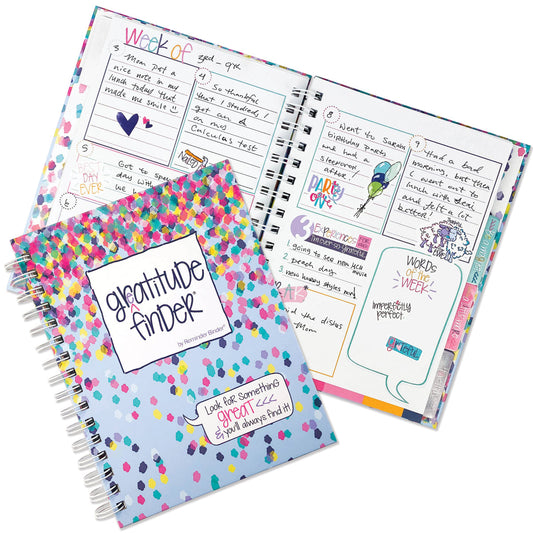 Week of 3rd - 9th
3 Mom put a
nice note in my
lunch today that
made me smile
4 So thankful
that I studied, I
got an A
on my
Calculus test
Nailed
5
BEST
DAY
EVER
Got to sp
day with
6
8 Went to Sarah
birthday party
and had a
sleepover
after
PARTY
9 Had a bad
morning, but then
I went out to
lunch with
and felt a lot
better!
3 Experiences
I'm ever-so-grateful
1. going to see new
movie
2. beach day
3. new
the dishes
Mom
WORDS
of the
WEEK
imperfectly
perfect.
grateful
greatitude
finder
by Reminder Binder
Look for something
great <<<
& you'll always find it!